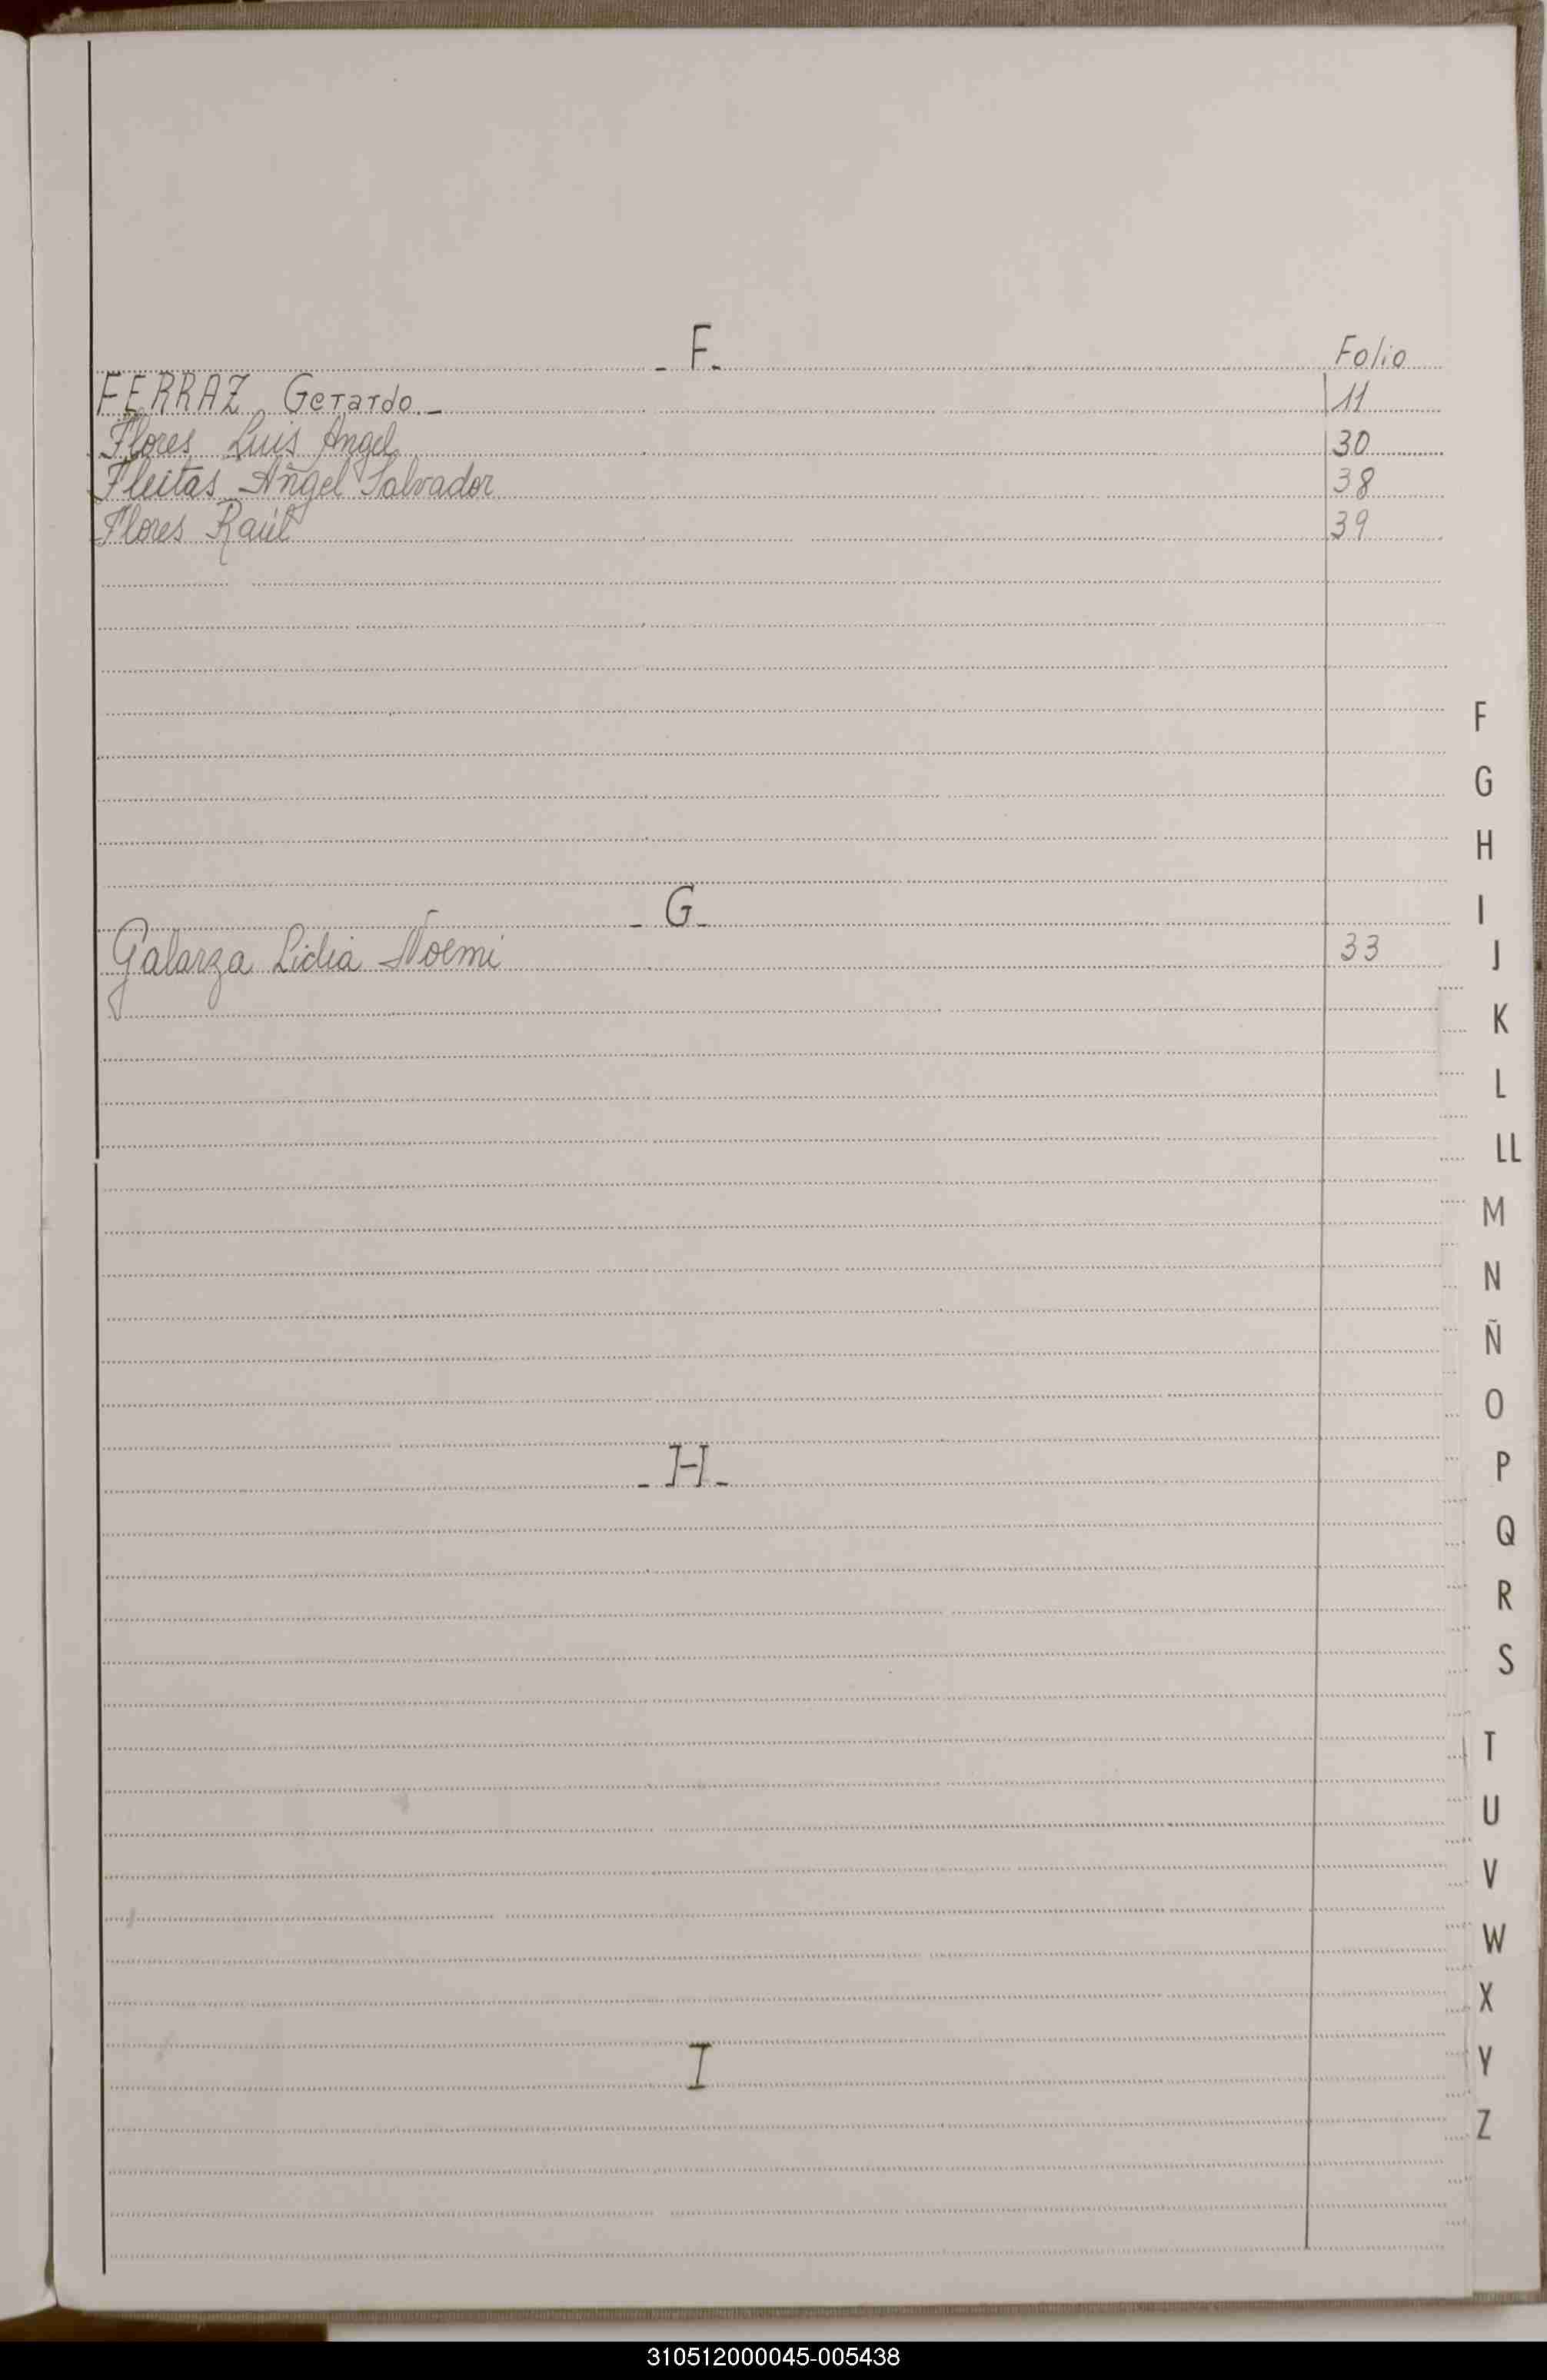 - F - Folio
FERRAZ Gerardo - 11
Flores Luis Angel 30
Fleitas Angel Salvador 38
Flores Raúl 39
- G -
Galarza Lidia Noemi 33
- H -
I
F
G
H
I
J
K
L
LL
M
N
Ñ
O
P
Q
R
S
T
U
V
W
X
Y
Z
310512000045-005438